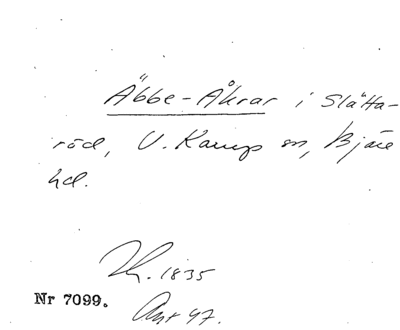 Äbbe-Åkrar i Slätta-
röd, V. Karups sn, Bjäre
hd.
1835
Nr 7099.
Ant 47.